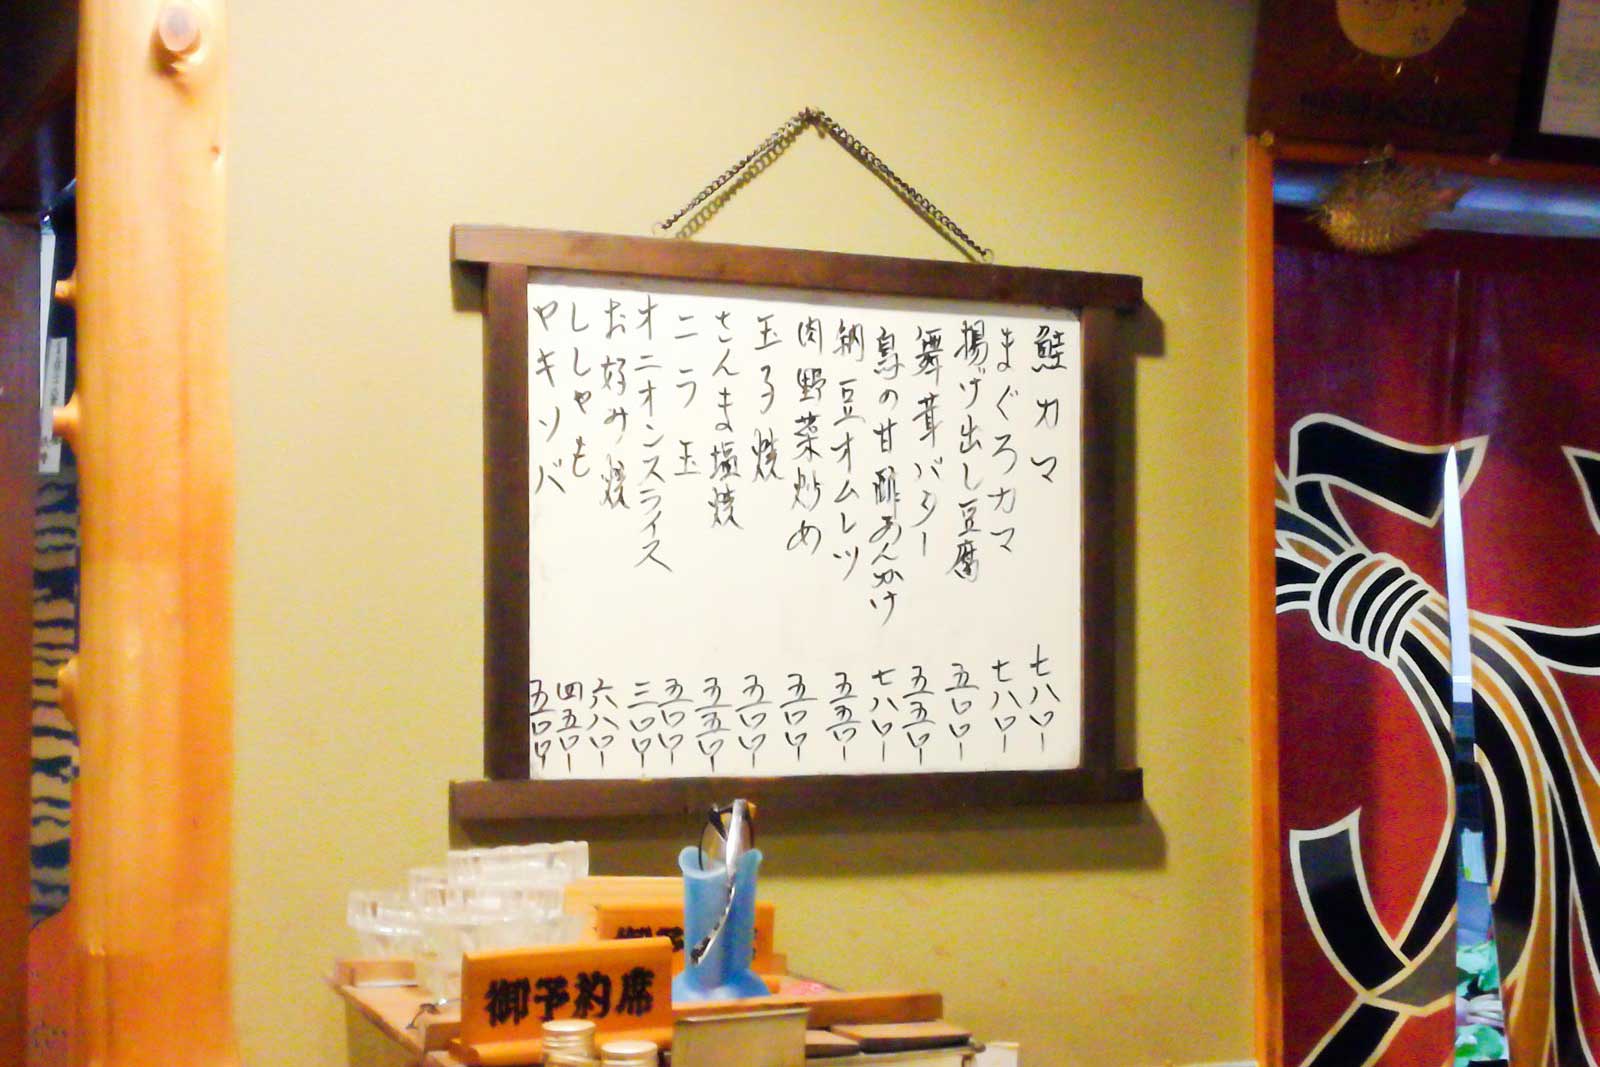 鮭カマ 七八〇-
まぐろカマ 七八〇-
揚げ出し豆腐 五〇〇-
舞茸バター 五五〇-
鳥の甘酢あんかけ 七八〇-
納豆オムレツ 五五〇-
肉野菜炒め 五〇〇-
玉子焼 五〇〇-
さんま塩焼 五五〇-
ニラ玉 五〇〇-
オニオンスライス 三〇〇-
お好み焼 六八〇-
ししゃも 四五〇-
ヤキソバ 五〇〇-
御予約席